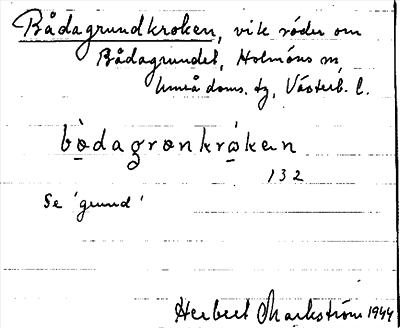 Bådagrundkroken, vik söder om
Bådagrundet, Holmöns sn
Umeå doms. tg, Västerb. l.
bò̱dagrønkrå̱kən
132
Se 'grund'
Herbert Markström 1944